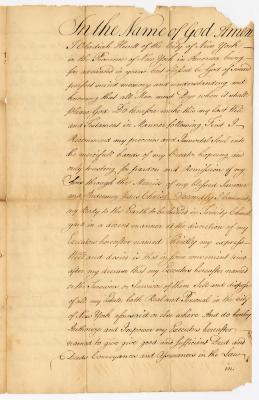 In the Name of God Amen
I Obadiah Hunt of the City of New York
in the Province of New York in America being
far advanced in years but blessed be God of sound
perfect mind memory and understanding and
knowing that all Men must Dye when it shall
please God Do therefore make this my last Will
and Testament in Manner following First I
Recommend my precious and Immortal Soul into
the mercifull hands of my Creator hopeing and
only trusting for pardon and Remission of my
Sins through the Merits of my blessed Saviour
and Redeemer Jesus Christ Secondly I commit
my Body to the Earth to be buried in Trinity Church
yard in a decent manner at the discretion of my
Executors hereafter named Thirdly my express
Will and desire is that in some convenient time
after my decease that my Executors hereafter named
or the Survivor or Survivors of them Sell and dispose
of all my Estate both Real and Personal in the city
of New York aforesaid or else where And do hereby
Authorize and Impower my Executors hereafter
named to give good and sufficient Deed and
Deeds Conveyances and Assurances in the Law
in